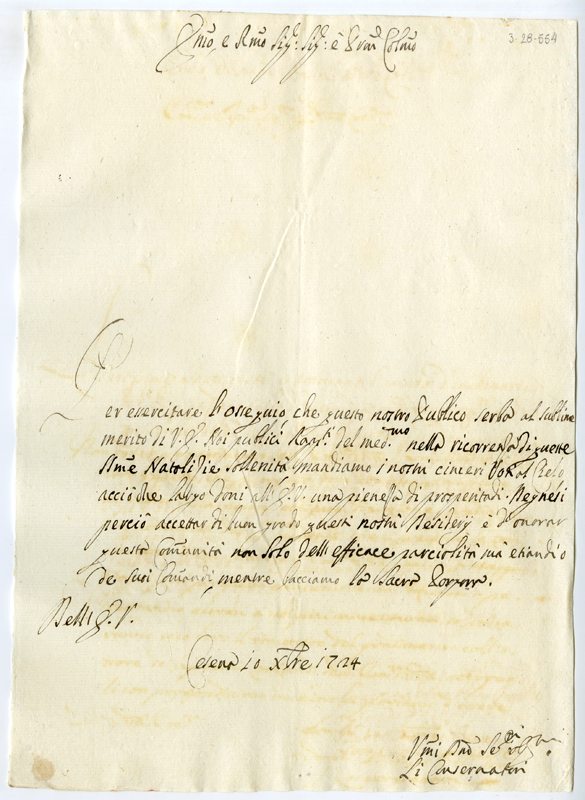 3-28-554
Emo, e Rmo Sig.r Sig.r e Pron Colmo
Per esercitare l'ossequio che questo nostro Publico serba al sublime
merito di V.E. Noi publici Rapp.ti del med.mo nella ricorrenza di queste
SSme Natalizie sollenità mandiamo i nostri cinceri Voti al Cielo
acciò che largo doni all'E.V. una pienezza di prosperità. Si degnesi
perciò accettar di buon grado questi nostri Desiderij è d'onorar
questa Comunità non solo dell'efficace parcialità mà etiandio
de suoi Comandi, mentre bacciamo la Sacra Porpora.
Dell' E.V.
Cesena 10 Xbre 1724
Li Conservatori